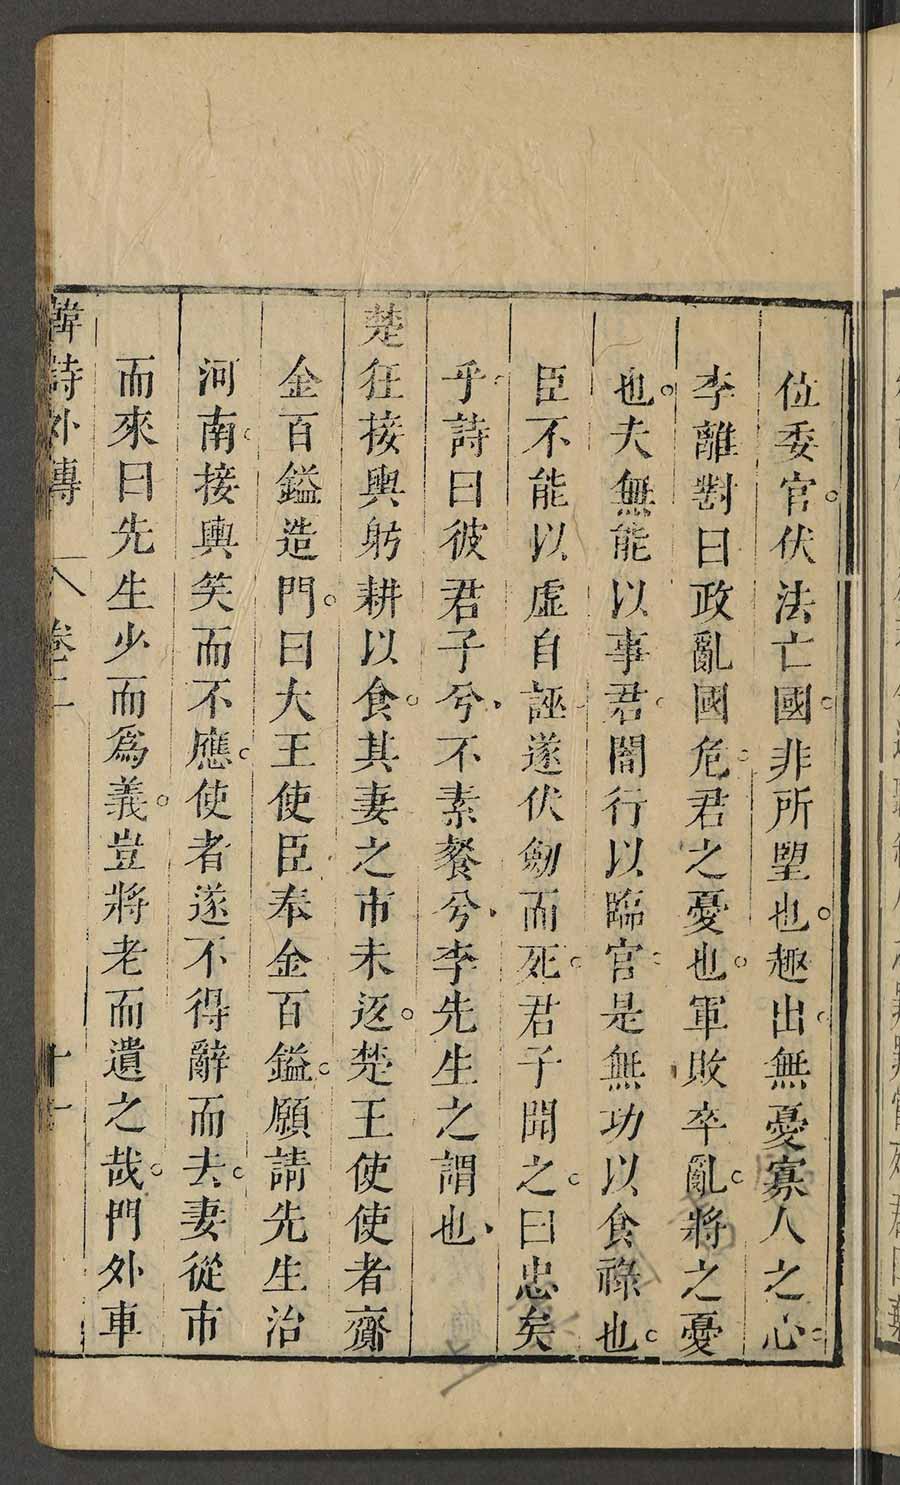 位委官伏法亡國非所望也趣出無憂寡人之心
李離對曰政亂國危君之憂也軍敗卒亂將之憂
也夫無能以事君闇行以臨官是無功以食祿也
臣不能以虛自誣遂伏劒而死君子聞之曰忠矣
乎詩曰彼君子兮不素餐兮李先生之謂也
楚狂接輿躬耕以食其妻之市未返楚王使使者齎
金百鎰造門曰大王使臣奉金百鎰願請先生治
河南接輿笑而不應使者遂不得辭而去妻從市
而來曰先生少而爲義豈將老而遺之哉門外車
韓詩外傳 卷二 十一